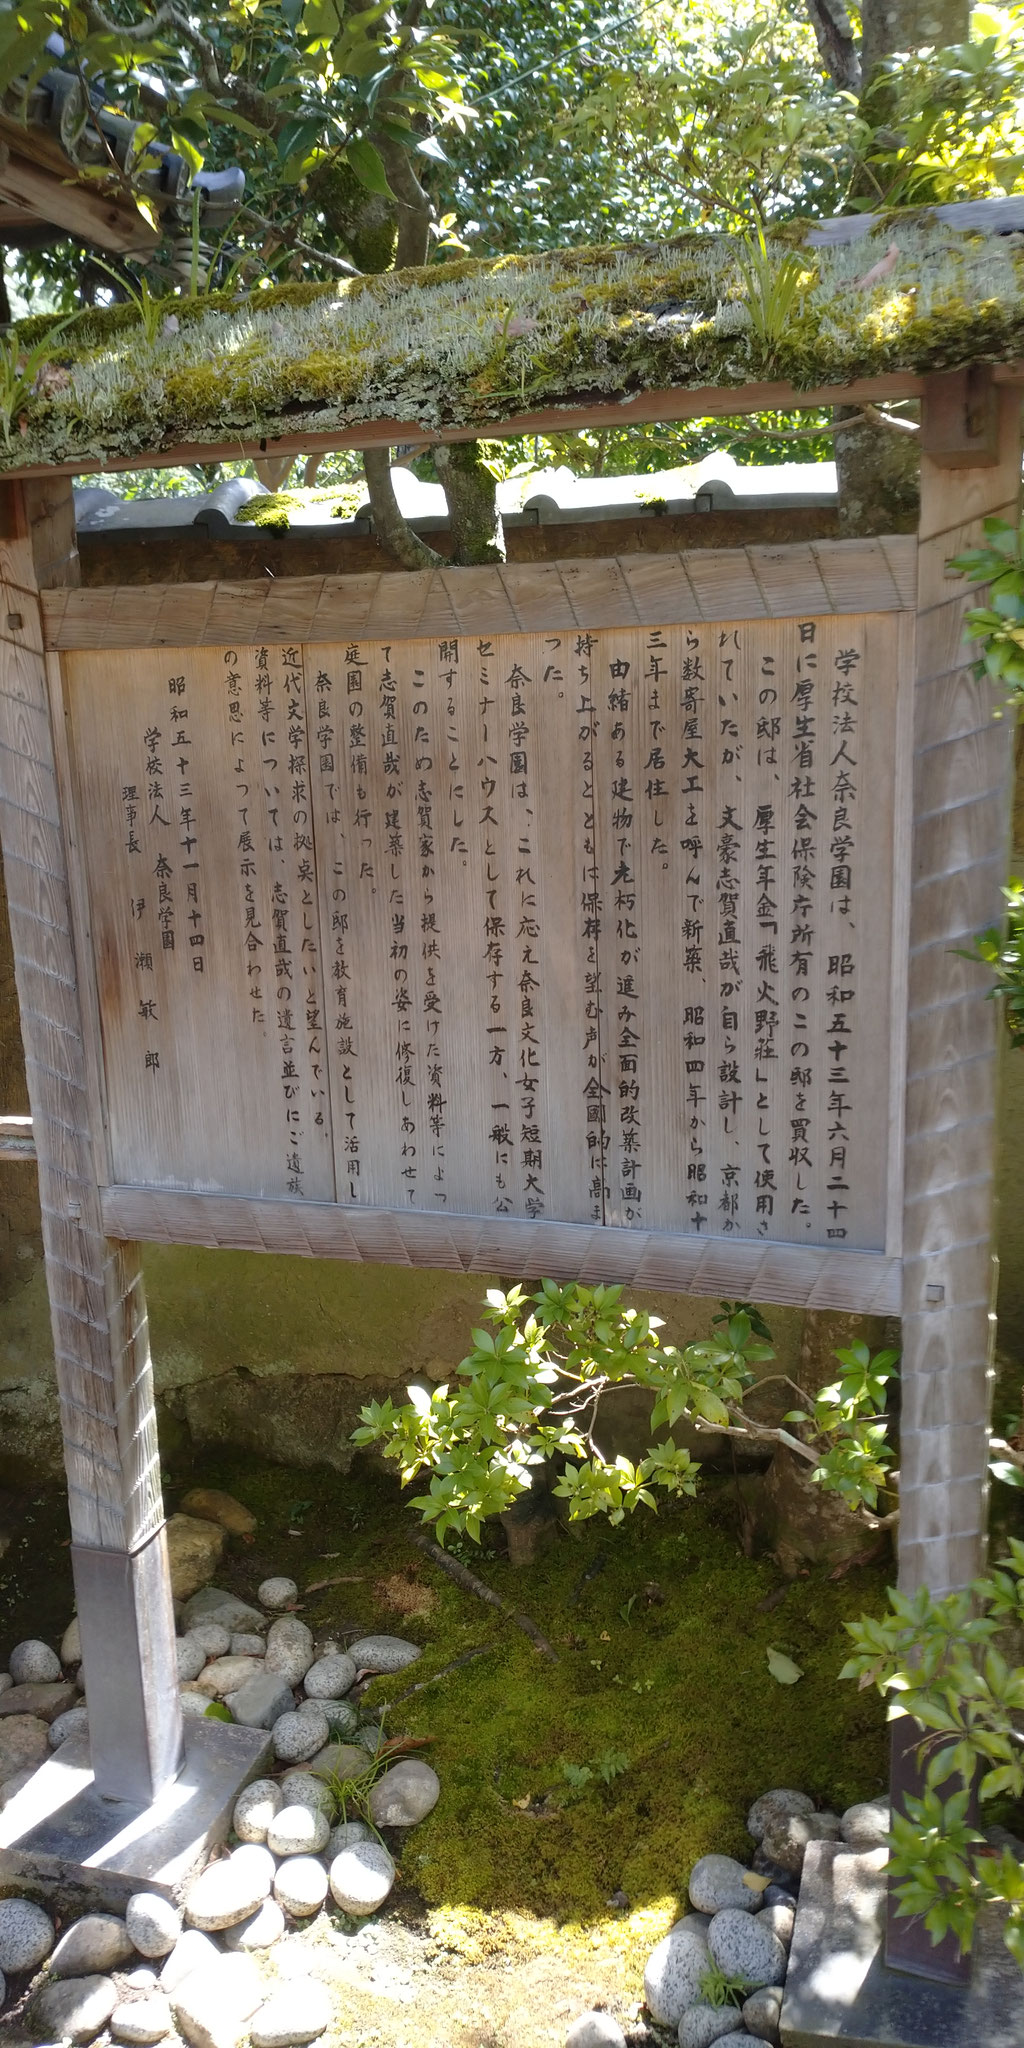 学校法人奈良学園は、昭和五十三年六月二十四
日に厚生省社会保険庁所有のこの邸を買収した。
この邸は、厚生年金「飛火野荘」として使用さ
れていたが、文豪志賀直哉が自ら設計し、京都か
ら数寄屋大工を呼んで新築、昭和四年から昭和十
三年まで居住した。
由緒ある建物で老朽化が進み全面的改築計画が
持ち上がるとともは保存を望む声が全國的に高ま
つた。
奈良学園は、これに応え奈良文化女子短期大学
セミナーハウスとして保存する一方、一般にも公
開することにした。
このため志賀家から提供を受けた資料等によつ
て志賀直哉が建築した当初の姿に修復しあわせて
庭園の整備も行った。
奈良学園では、この邸を教育施設として活用し
近代文学探求の拠点としたいと望んでいる。
資料等については、志賀直哉の遺言並びにご遺族
の意思によって展示を見合わせた。
昭和五十三年十一月十四日
学校法人 奈良学園
理事長 伊瀬敏郎